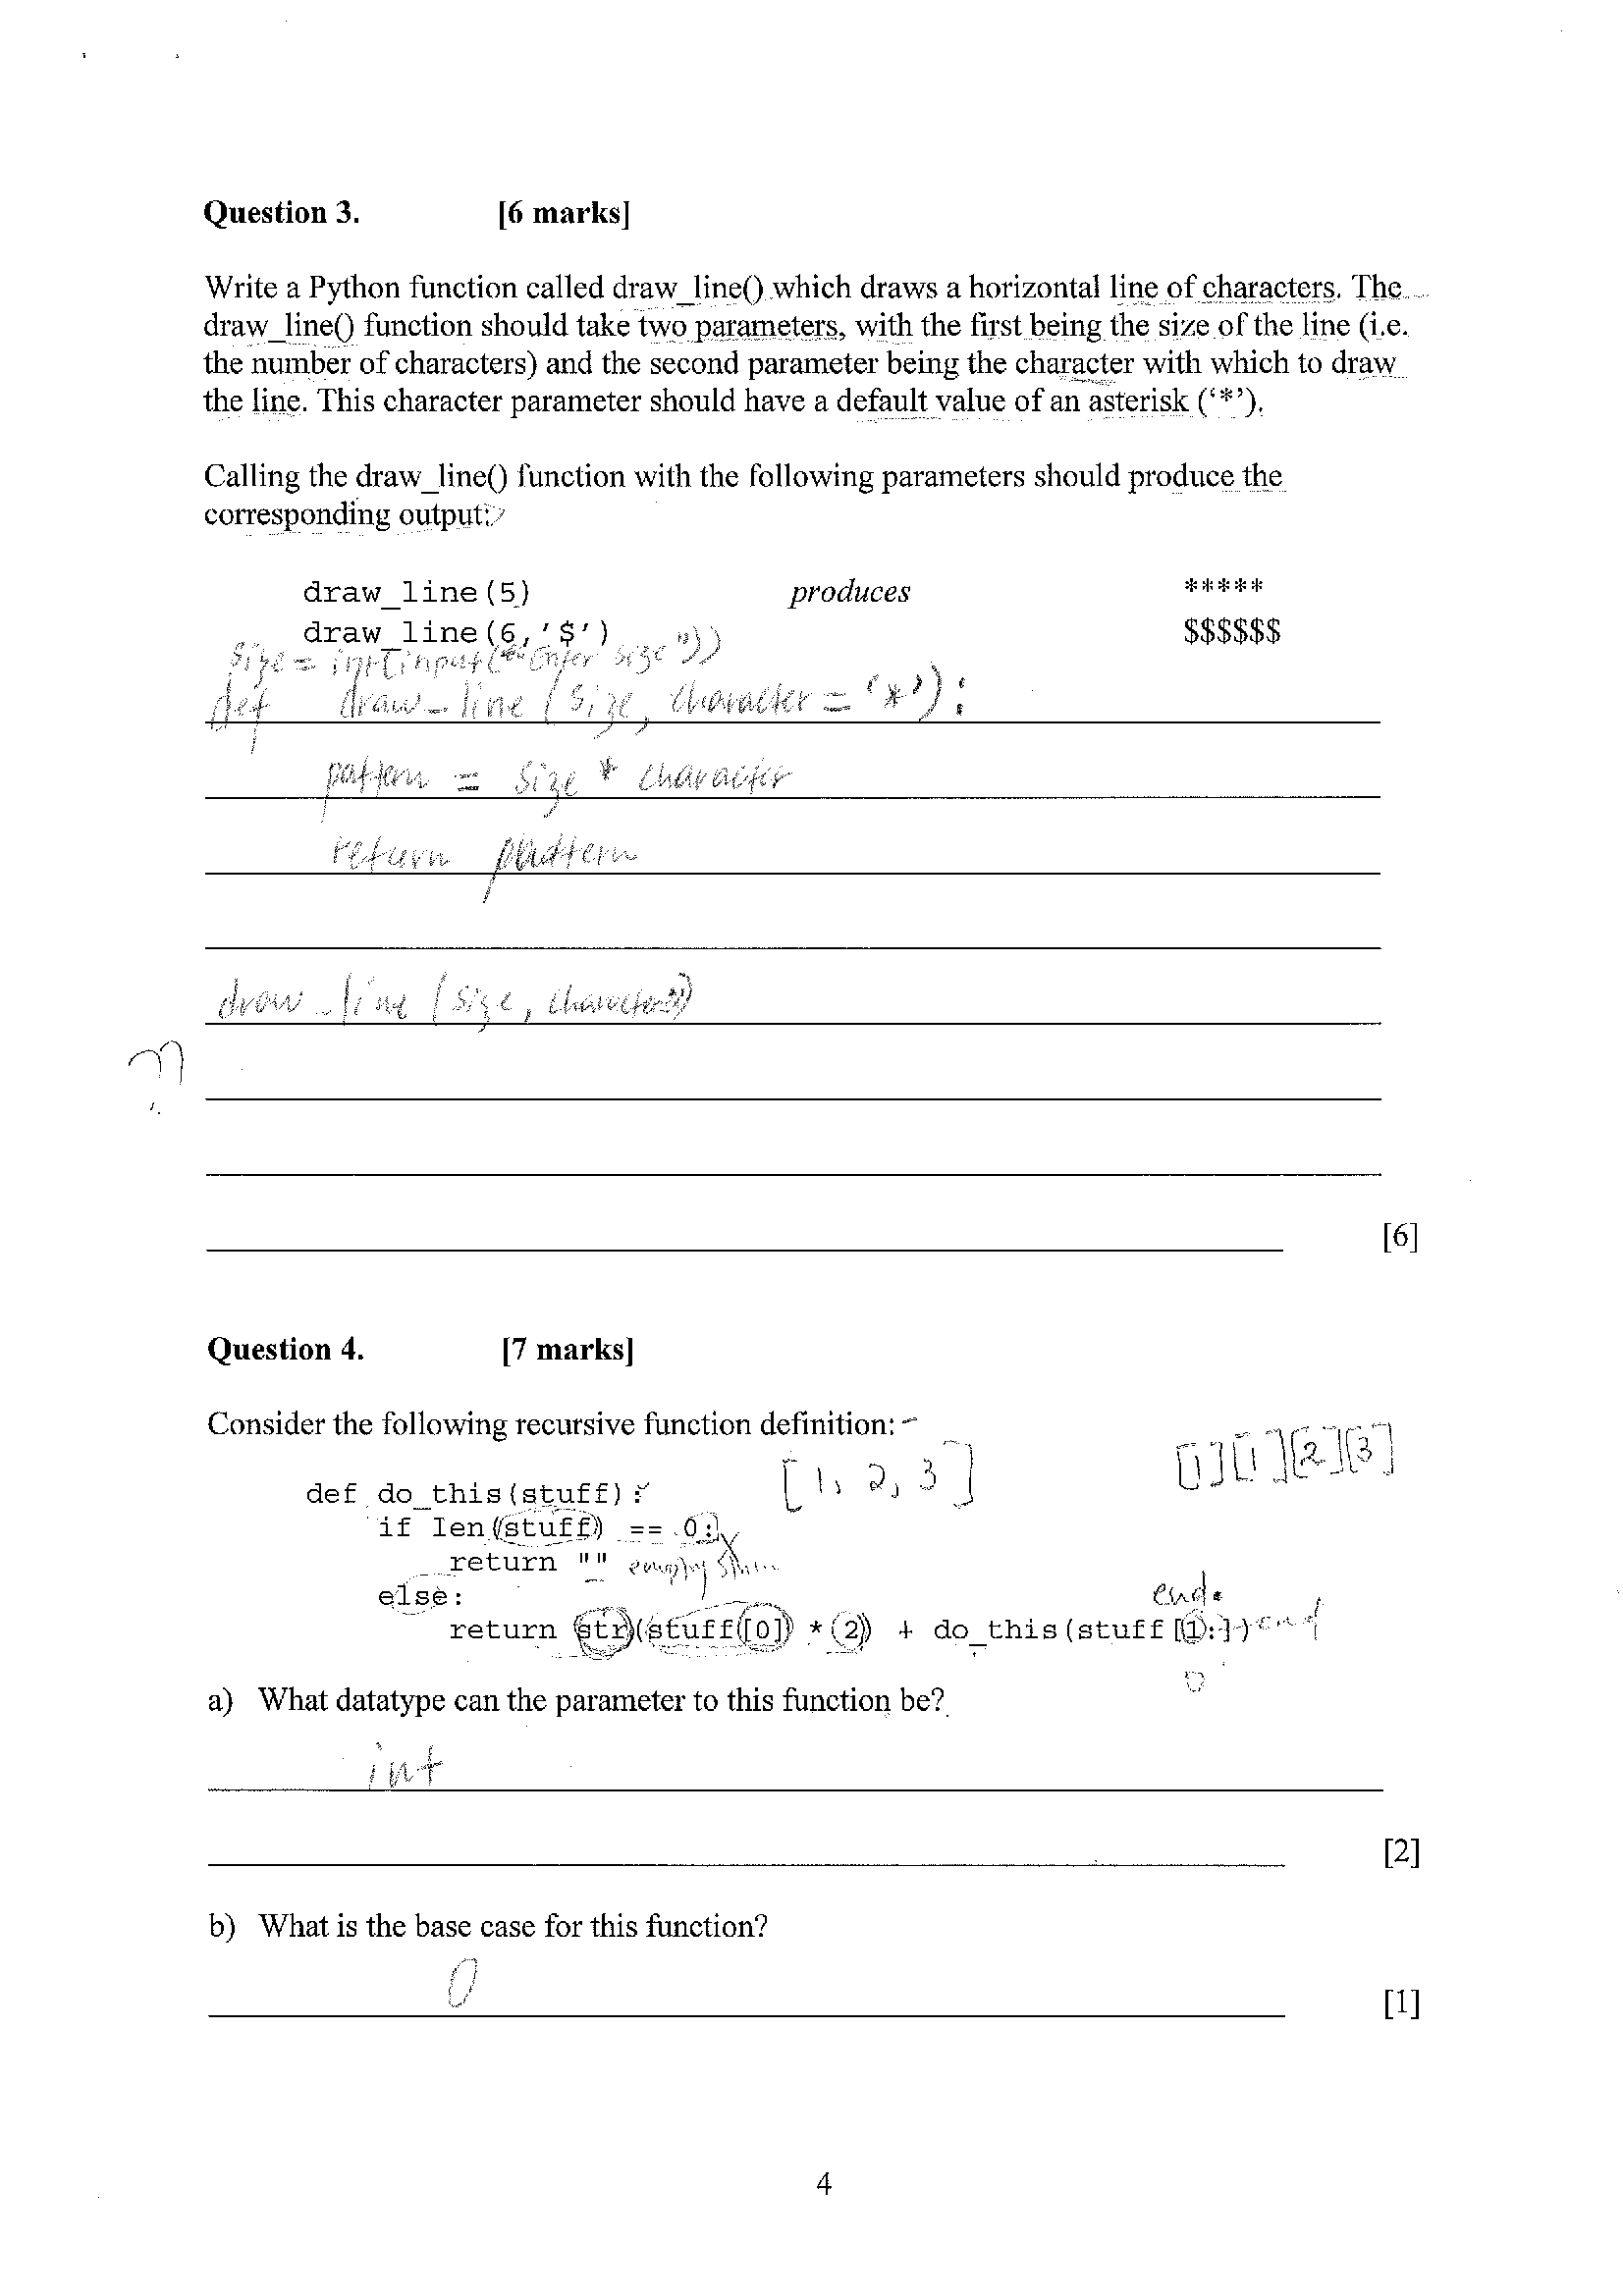 Question 3. [6 marks]
Write a Python function called draw_line() which draws a horizontal line of characters. The
draw_line() function should take two parameters, with the first being the size of the line (i.e.
the number of characters) and the second parameter being the character with which to draw
the line. This character parameter should have a default value of an asterisk (‘*’).
Calling the draw_line() function with the following parameters should produce the
corresponding output:
draw_line(5) produces *****
draw_line(6,'$') $$$$$$
size = int(input("Enter size"))
def draw_line (size, character = '*'):
pattern = size * character
return pattern
draw_line (size, character)
??
[6]
Question 4. [7 marks]
Consider the following recursive function definition:
[1, 2, 3] [1][1][2][3]
def do_this(stuff):
if len(stuff) == 0:
return "" empty
else: end.
return str(stuff[0] * 2) + do_this(stuff[1:]) end
0
a) What datatype can the parameter to this function be?
int
[2]
b) What is the base case for this function?
0
[1]
4